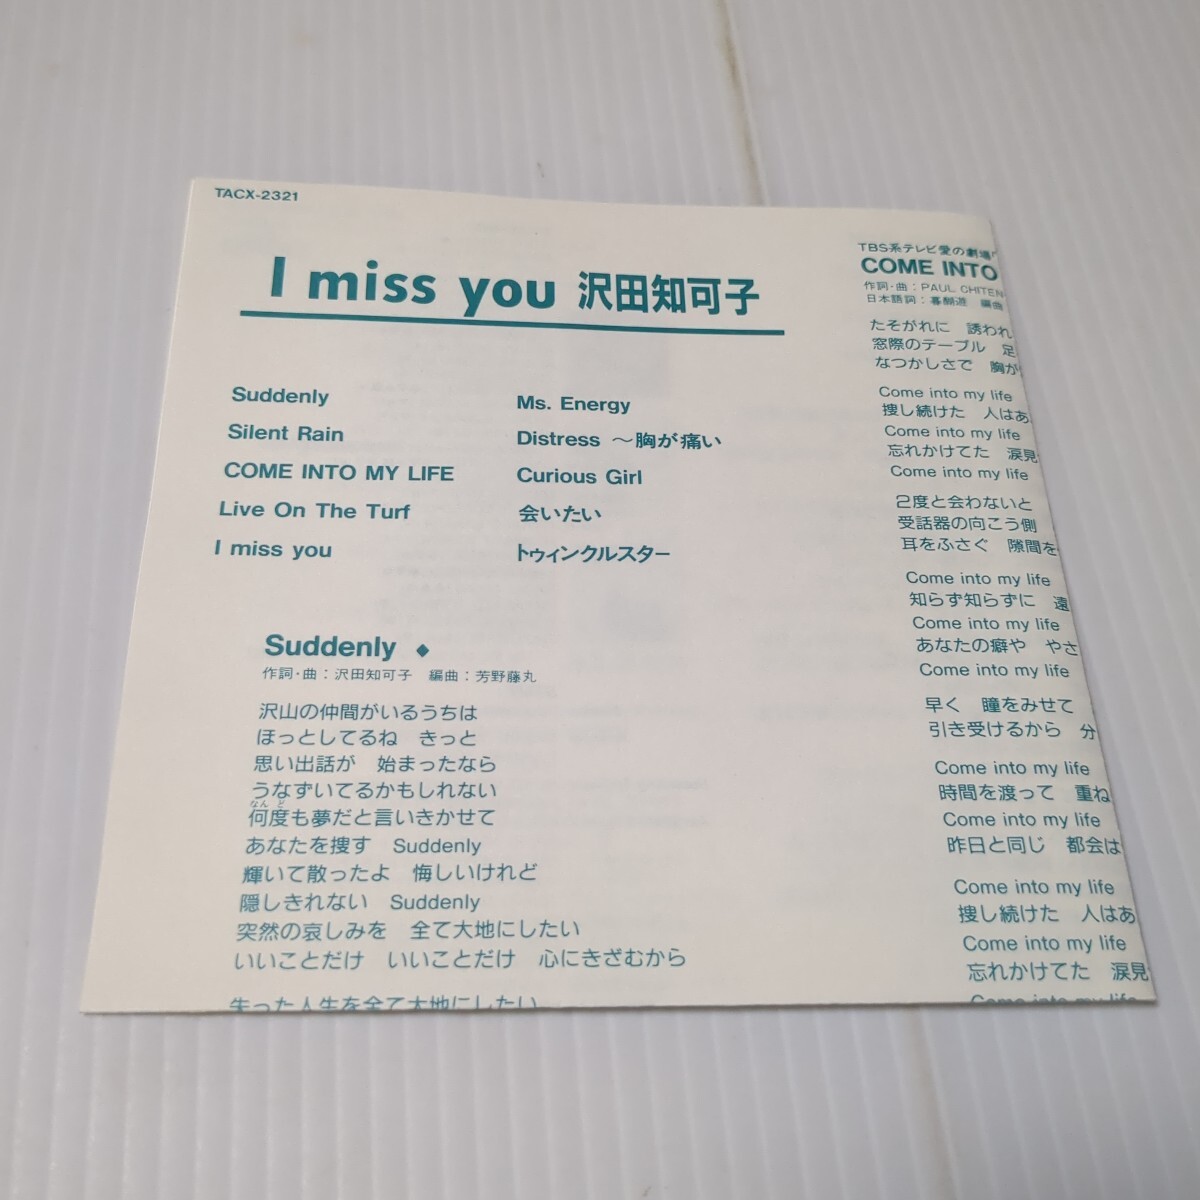 TACX-2321
I miss you 沢田知可子
Suddenly
Silent Rain
COME INTO MY LIFE
Live On The Turf
I miss you
Ms. Energy
Distress 〜胸が痛い
Curious Girl
会いたい
トゥィンクルスター
Suddenly ◆
作詞・曲：沢田知可子 編曲：芳野藤丸
沢山の仲間がいるうちは
ほっとしてるね きっと
思い出話が 始まったなら
うなずいてるかもしれない
なんど
何度も夢だと言いきかせて
あなたを捜す Suddenly
輝いて散ったよ 悔しいけれど
隠しきれない Suddenly
突然の哀しみを 全て大地にしたい
いいことだけ いいことだけ 心にきざむから
失った人生を全て大地にしたい
TBS系テレビ愛の劇場
COME INTO
作詞・曲：PAUL CHITEN
日本語詞： 編曲
たそがれに 誘われ
窓際のテーブル 足
なつかしさで 胸が
Come into my life
捜し続けた 人はあ
Come into my life
忘れかけてた 涙見
Come into my life
2度と会わないと
受話器の向こう側
耳をふさぐ 隙間を
Come into my life
知らず知らずに 遠
Come into my life
あなたの癖や やさ
Come into my life
早く 瞳をみせて
引き受けるから 分
Come into my life
時間を渡って 重ね
Come into my life
昨日と同じ 都会は
Come into my life
捜し続けた 人はあ
Come into my life
忘れかけてた 涙見
Come into my life